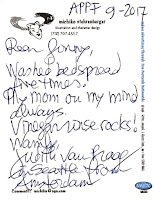 APPF 9-2017
michiko stehrenberger
illustration and character design
Dear Jimmy,
Washed bedspread
five times.
My mom on my mind
always.
Vinegar rinse rocks!
Warmly,
Judith van Praag
in Seattle from
Amsterdam